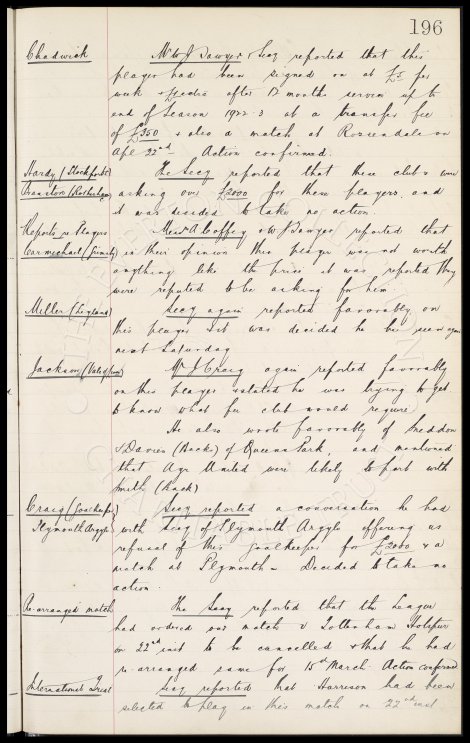 196
Chadwick Mr W J Sawyer & Secy reported that this
player had been signed on at £5 per
week & after 12 months service up to
end of Season 1922-3 at a transfer fee
of £350 & also a match at Rossendale on
Apl 22nd Action confirmed.
Hardy (Stockport) The Secy reported that these clubs were
Cranston (Rotherham) asking over £2000 for these players and
it was decided to take no action.
Reports re Players Messrs A Coffey & W J Sawyer reported that
Carmichael (Grimsby) in their opinion this player was not worth
anything like the price it was reported they
were reputed to be asking for him.
Miller (Leyland) Secy again reported favorably on
this player & it was decided he be seen again
next Saturday
Jackson (Vale of ) Mr J Craig again reported favorably
on this player & stated he was trying to get
to know what fee club would require
He also wrote favorably of Sneddon
& Davies (Backs) of Queens Park, and mentioned
that Ayr United were likely to part with
Smith (Back)
Craig (Goalkeeper) Secy reported a conversation he had
Plymouth Argyle with Secy of Plymouth Argyle offering us
refusal of this Goalkeeper for £2000 & a
match at Plymouth – Decided to take no
action.
Re-arranged match The Secy reported that the League
had ordered our match v Tottenham Hotspur
on 22nd inst to be cancelled & that he had
re-arranged same for 15th March. Action confirmed
International Trial Secy reported that Harrison had been
selected to play in this match on 22nd inst